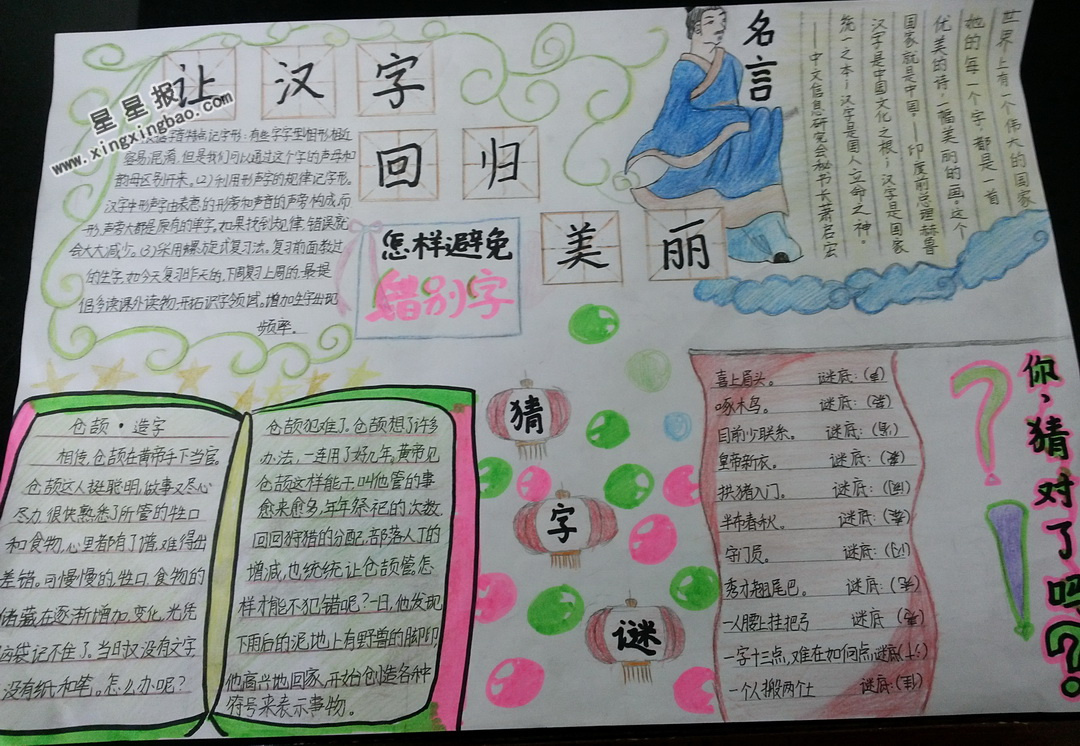 让汉字
回归
美丽
星星报
www.xingxingbao.com
容易混淆,但是我们可以通过这个字的声母和
韵母区别开来。(2)利用形声字的规律记字形。
汉字中形声字由表意的形旁和声音的声旁构成,而
形声旁大都是原有的单字,如果找到规律,错误就
会大大减少。(3)采用螺旋式复习法。复习前面教过
的生字,如今天复习昨天的,下周复习上周的,最提
倡多读课外读物,开拓识字领域。增加生字出现
频率。
怎样避免
错别字
名言
世界上有一个伟大的国家
她的每一个字,都是一首
优美的诗,一幅美丽的画。这个
国家就是中国。——印度前总理赫鲁
汉字是中国文化之根;汉字是国家
统一之本;汉字是国人立命之神。
——中文信息研究会秘书长萧名宏
仓颉·造字
相传,仓颉在黄帝手下当官。
仓颉这人挺聪明,做事又尽心
尽力,很快熟悉了所管的牲口
和食物,心里都有了谱,难得出
差错。可慢慢的,牲口、食物的
储藏在逐渐增加、变化,光凭
脑袋记不住了,当时又没有文字,
没有纸和笔。怎么办呢?
仓颉犯难了。仓颉想了许多
办法,一连用了好几年。黄帝见
仓颉这样能干,叫他管的事
愈来愈多,年年祭祀的次数,
回回狩猎的分配,部落人丁的
增减,也统统让仓颉管。怎
样才能不犯错呢?一日,他发现
下雨后的泥地上有野兽的脚印,
他高兴地回家,开始创造各种
符号来表示事物。
猜
字
谜
喜上眉头。 谜底:(声)
啄木鸟。 谜底:
目前少联系。 谜底:
皇帝新衣。 谜底:
拱猪入门。 谜底:
半布春秋。 谜底:
守门员。 谜底:(闪)
秀才翘尾巴。 谜底:
一人腰上挂把弓 谜底:
一字十三点,难在如何点 谜底
一个人搬两个土 谜底:
你,猜对了吗??